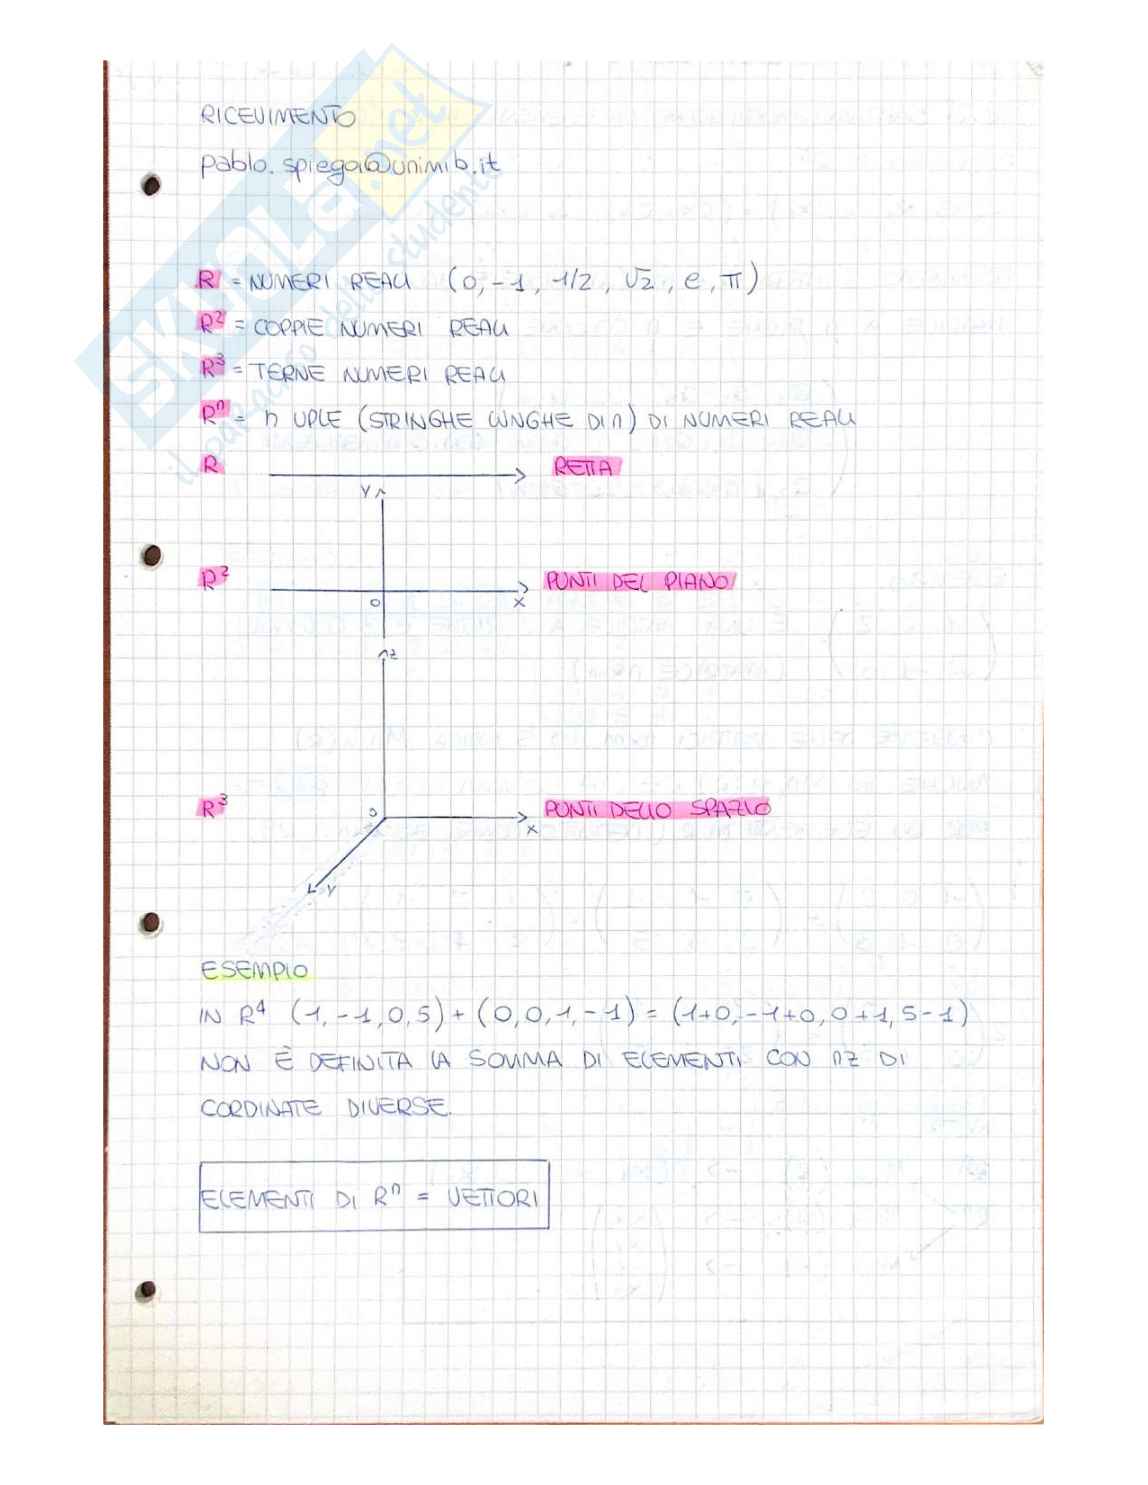 RICEVIMENTO
pablo.spiega@unimib.it
R = NUMERI REALI (0, -1, 1/2, √2, e, π)
R² = COPPIE NUMERI REALI
R³ = TERNE NUMERI REALI
Rⁿ = n UPLE (STRINGHE LUNGHE DI n) DI NUMERI REALI
R RETTA
Y
R² PUNTI DEL PIANO
O X
Z
R³ O PUNTI DELLO SPAZIO
X
Y
ESEMPIO
IN R⁴ (1, -1, 0, 5) + (0, 0, 1, -1) = (1+0, -1+0, 0+1, 5-1)
NON È DEFINITA LA SOMMA DI ELEMENTI CON nz DI
CORDINATE DIVERSE.
ELEMENTI DI Rⁿ = VETTORI
SKUOLa.net
il paradiso dello studente